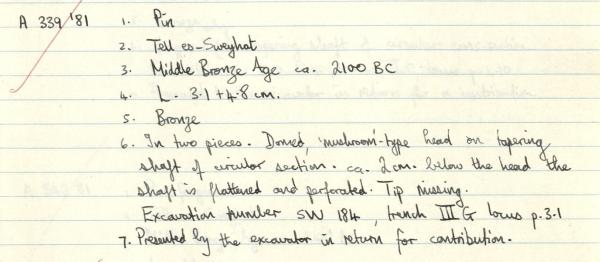 A 339 '81
1. Pin
2. Tell es-Sweyhat
3. Middle Bronze Age ca. 2100 BC
4. L. 3·1 + 4·8 cm.
5. Bronze
6. In two pieces. Domed, 'mushroom'-type head on tapering
shaft of circular section. ca. 2cm. below the head the
shaft is flattened and perforated. Tip missing.
Excavation number SW 184, trench III G locus p.3·1
7. Presented by the excavator in return for contribution.